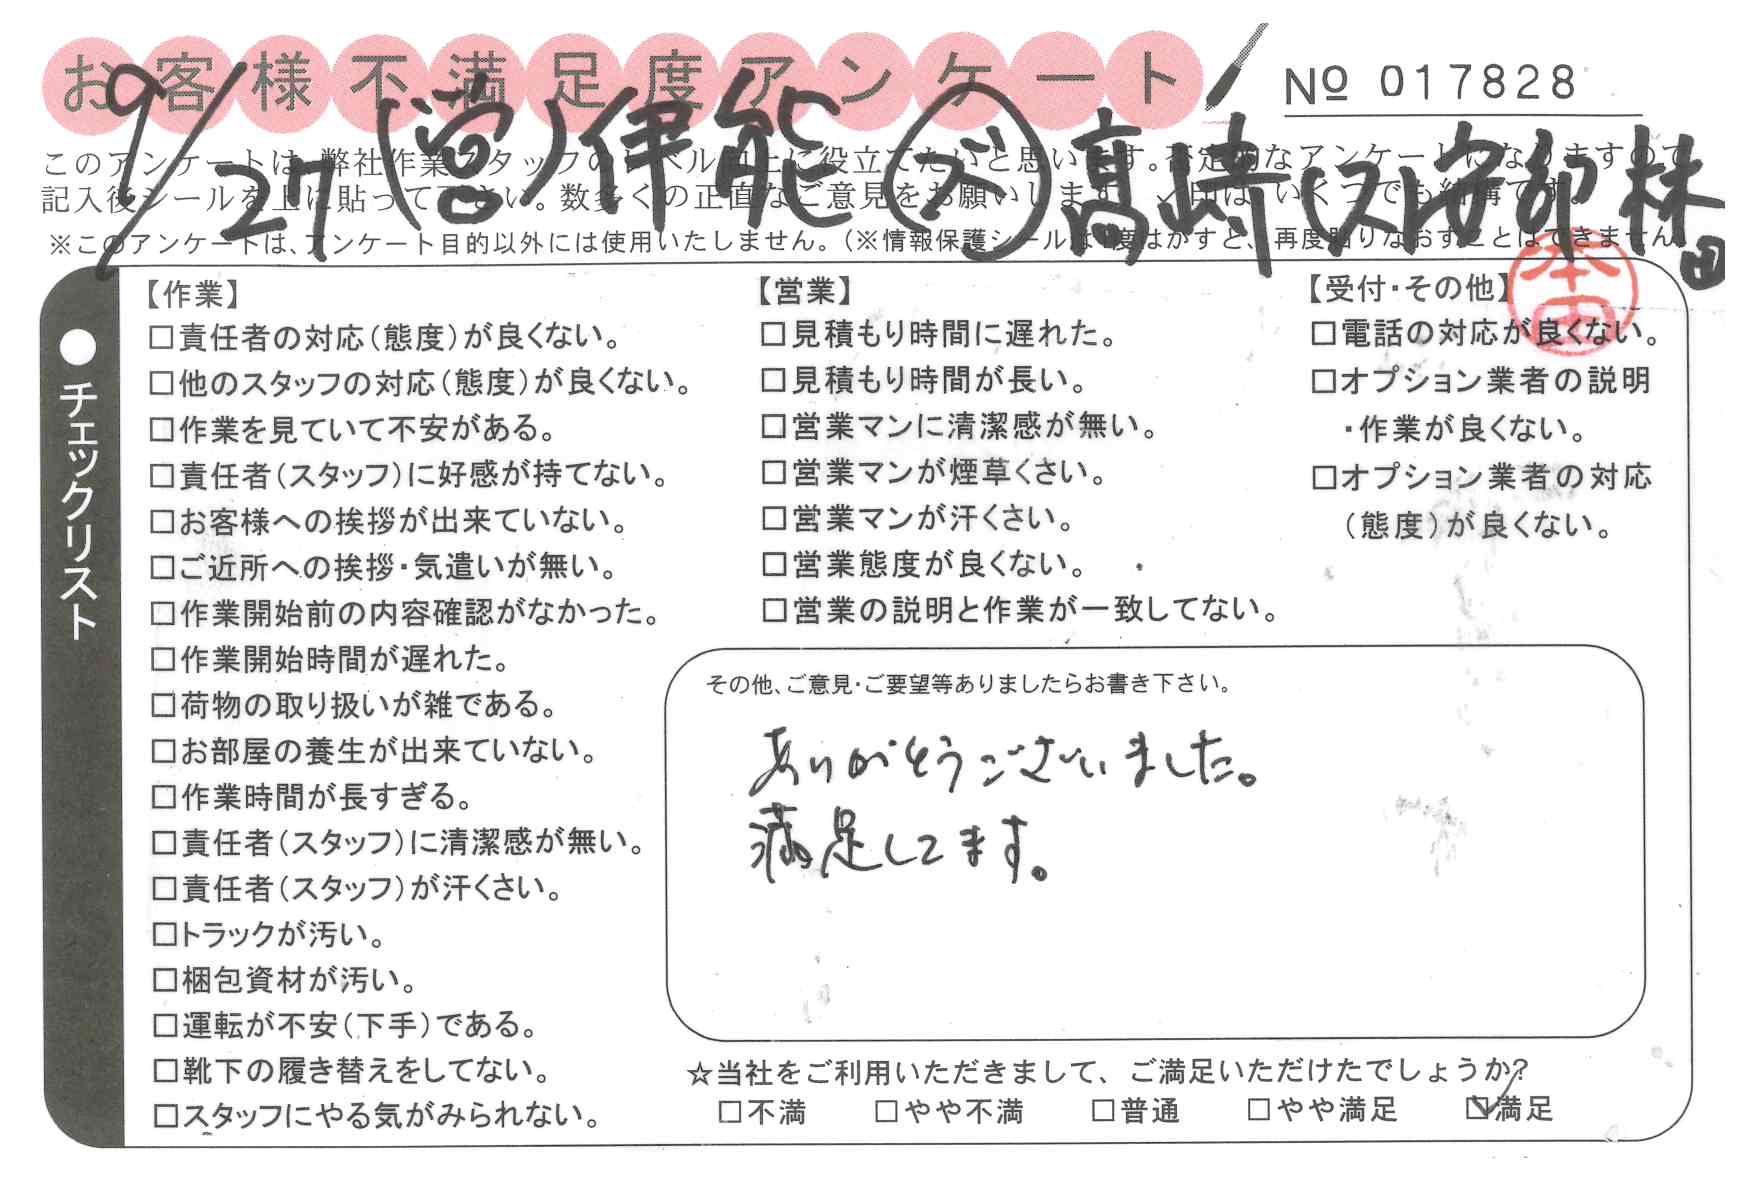 お客様不満足度アンケート
№ 017828
9/27 (営)伊能 ㋷髙崎 (ス)安部 林田
このアンケートは、弊社作業スタッフのレベル向上に役立てたいと思います。否定的なアンケートになりますので
記入後シールを上に貼って下さい。数多くの正直なご意見をお願いします。✓印は、いくつでも結構です。
※このアンケートは、アンケート目的以外には使用いたしません。(※情報保護シールは1度はがすと、再度貼りなおすことはできません
本田
●チェックリスト
【作業】
□責任者の対応(態度)が良くない。
□他のスタッフの対応(態度)が良くない。
□作業を見ていて不安がある。
□責任者(スタッフ)に好感が持てない。
□お客様への挨拶が出来ていない。
□ご近所への挨拶・気遣いが無い。
□作業開始前の内容確認がなかった。
□作業開始時間が遅れた。
□荷物の取り扱いが雑である。
□お部屋の養生が出来ていない。
□作業時間が長すぎる。
□責任者(スタッフ)に清潔感が無い。
□責任者(スタッフ)が汗くさい。
□トラックが汚い。
□梱包資材が汚い。
□運転が不安(下手)である。
□靴下の履き替えをしてない。
□スタッフにやる気がみられない。
【営業】
□見積もり時間に遅れた。
□見積もり時間が長い。
□営業マンに清潔感が無い。
□営業マンが煙草くさい。
□営業マンが汗くさい。
□営業態度が良くない。
□営業の説明と作業が一致してない。
【受付・その他】
□電話の対応が良くない。
□オプション業者の説明
・作業が良くない。
□オプション業者の対応
(態度)が良くない。
その他、ご意見・ご要望等ありましたらお書き下さい。
ありがとうございました。
満足してます。
☆当社をご利用いただきまして、ご満足いただけたでしょうか?
□不満 □やや不満 □普通 □やや満足 ☑満足